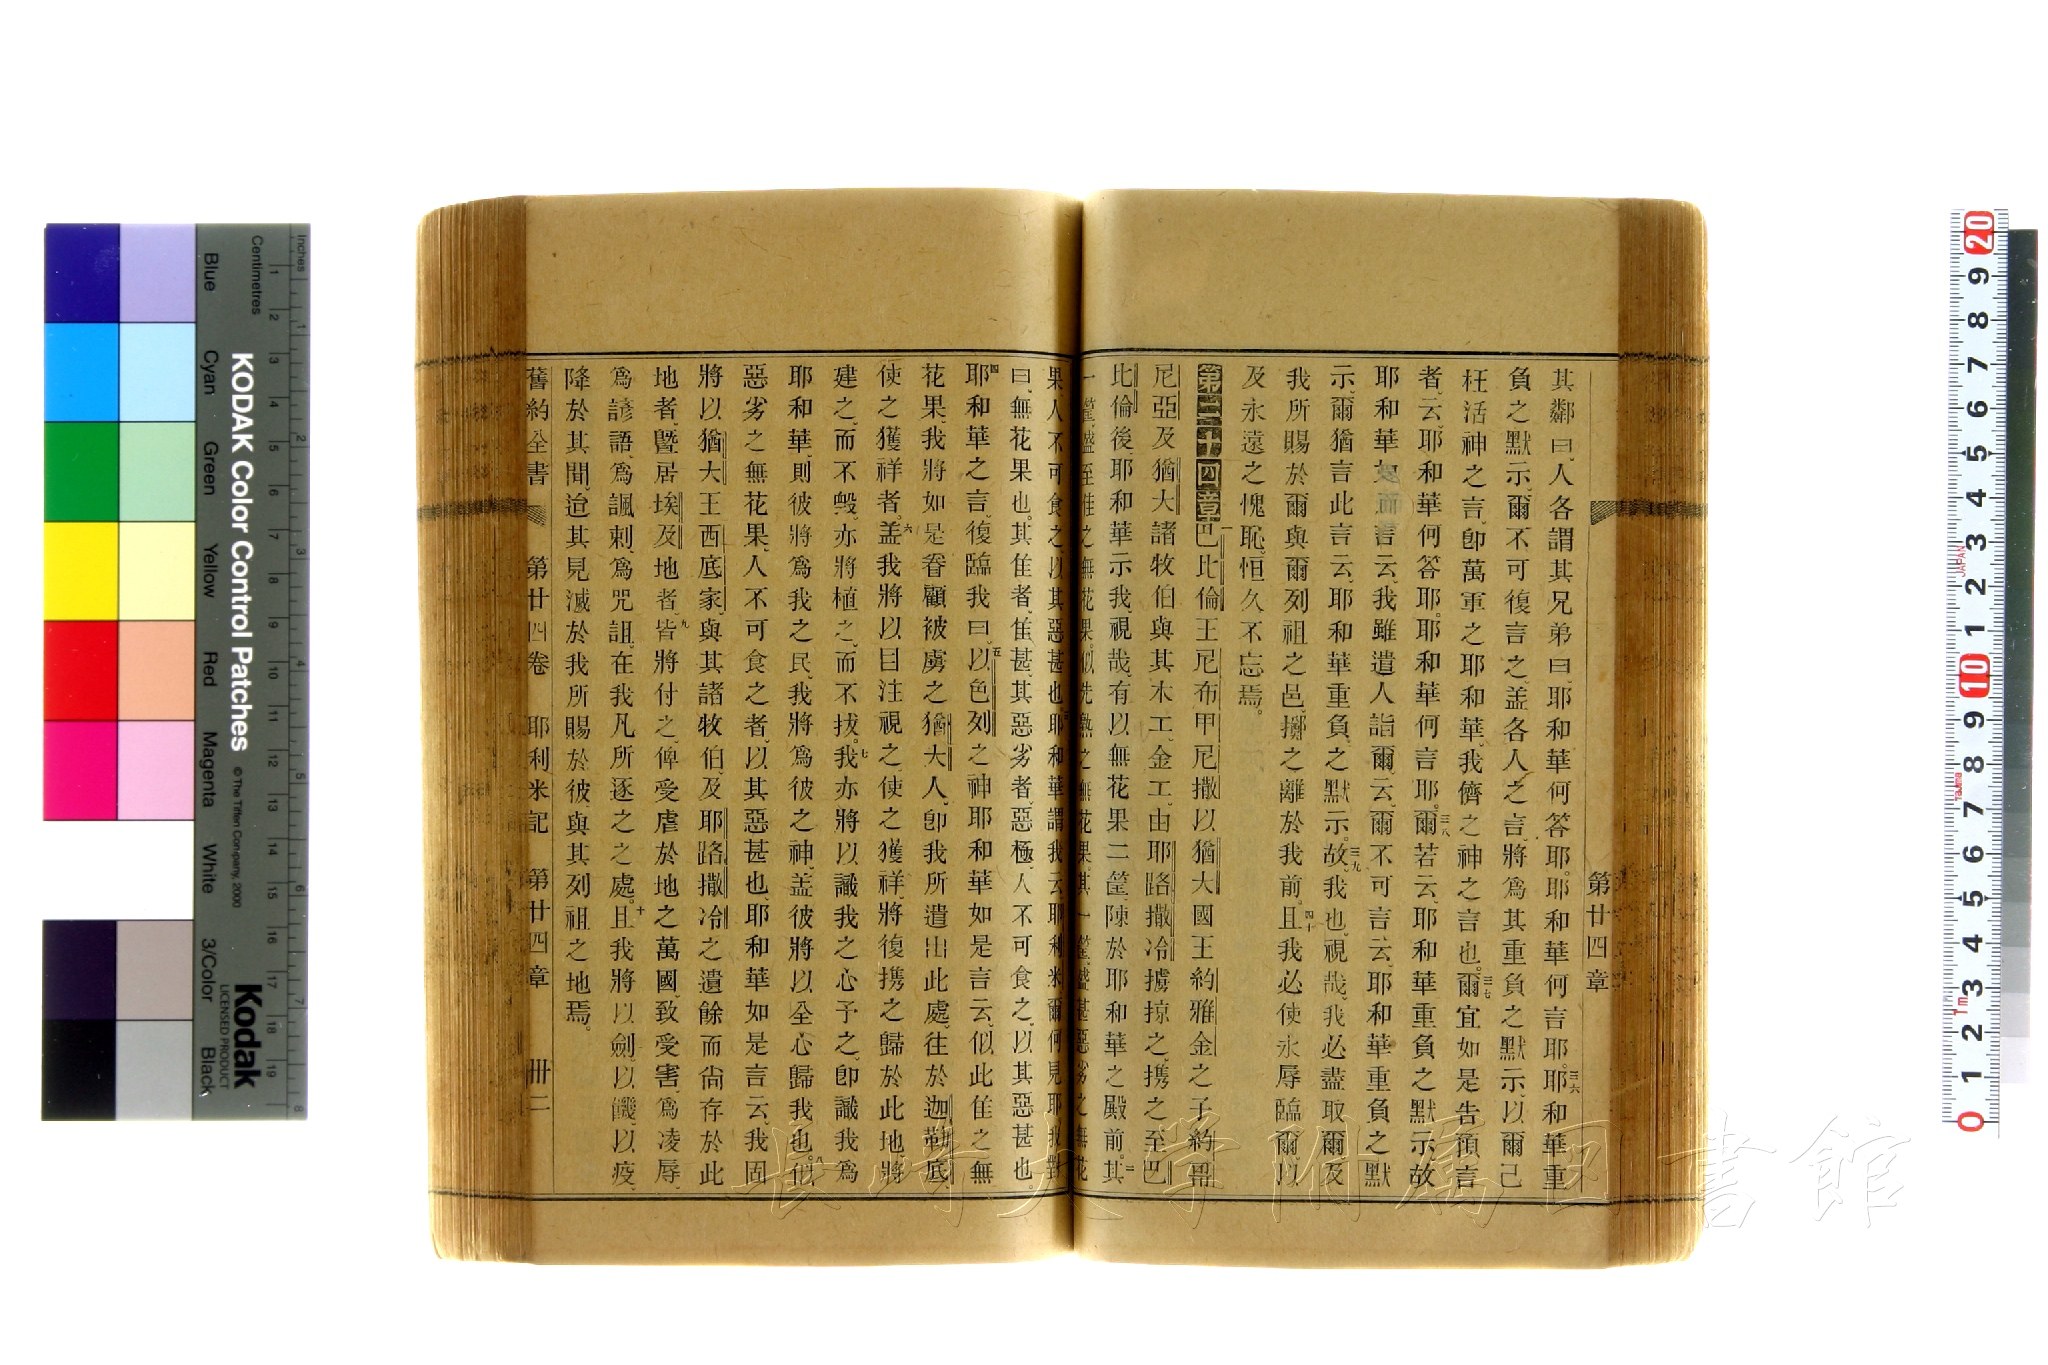 第廿四章
其鄰曰、人各謂其兄弟曰、耶和華何答耶。耶和華何言耶。三六耶和華重
負之默示、爾不可復言之、盖各人之言、將爲其重負之默示、以爾己
枉活神之言、卽萬軍之耶和華、我儕之神之言也。三七爾宜如是告預言
者、云、耶和華何答耶。耶和華何言耶。三八爾若云、耶和華重負之默示、故
耶和華如而言云、我雖遣人詣爾云、爾不可言云、耶和華重負之默
示、爾猶言此言云、耶和華重負之默示。三九故我也、視哉、我必盡取爾、及
我所賜於爾與爾列祖之邑、擲之離於我前。四十且我必使永辱臨爾、以
及永遠之愧恥、恒久不忘焉。
第二十四章 一巴比倫王尼布甲尼撒以猶大國王約雅金之子約
尼亞及猶大諸牧伯與其木工、金工、由耶路撒冷擄掠之、携之至巴
比倫後、耶和華示我、視哉、有以無花果二筐、陳於耶和華之殿前。二其
一筐、盛至佳之無花果、似先熟之無花果、其一筐、盛甚惡劣之無花
果、人不可食之、以其惡甚也。三耶和華謂我云、耶利米爾何見耶、我對
曰、無花果也。其隹者、隹甚、其惡劣者、惡極、人不可食之、以其惡甚也。
四耶和華之言、復臨我曰、五以色列之神耶和華如是言云、似此隹之無
花果、我將如是眷顧被虜之猶大人、卽我所遣出此處、往於迦勒底、
使之獲祥者。六盖我將以目注視之、使之獲祥、將復携之歸於此地、將
建之、而不毀、亦將植之、而不拔。七我亦將以識我之心予之、卽識我爲
耶和華、則彼將爲我之民、我將爲彼之神、盖彼將以全心歸我也。八似
惡劣之無花果、人不可食之者、以其惡甚也、耶和華如是言云、我固
將以猶大王西底家、與其諸牧伯、及耶路撒冷之遺餘而尙存於此
地者、曁居埃及地者、九皆將付之、俾受虐於地之萬國、致受害、爲凌辱、
爲諺語、爲諷刺、爲咒詛、在我凡所逐之之處。十且我將以劍、以饑、以疫、
降於其間、迨其見滅於我所賜於彼、與其列祖之地焉。
舊約全書 第廿四卷 耶利米記 第廿四章 卅二
長崎大学附属図書館
KODAK Color Control Patches
©The Tiffen Company, 2000
Kodak
LICENSED PRODUCT
Inches
Centimetres
Blue
Cyan
Green
Yellow
Red
Magenta
White
3/Color
Black